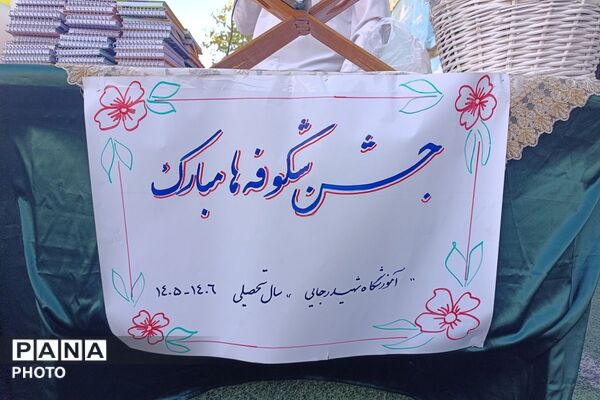 جشن شکوفه ها مبارک
" آموزشگاه شهید رجایی " سال تحصیلی ۱۴۰۶-۱۴۰۵
PANA
PHOTO